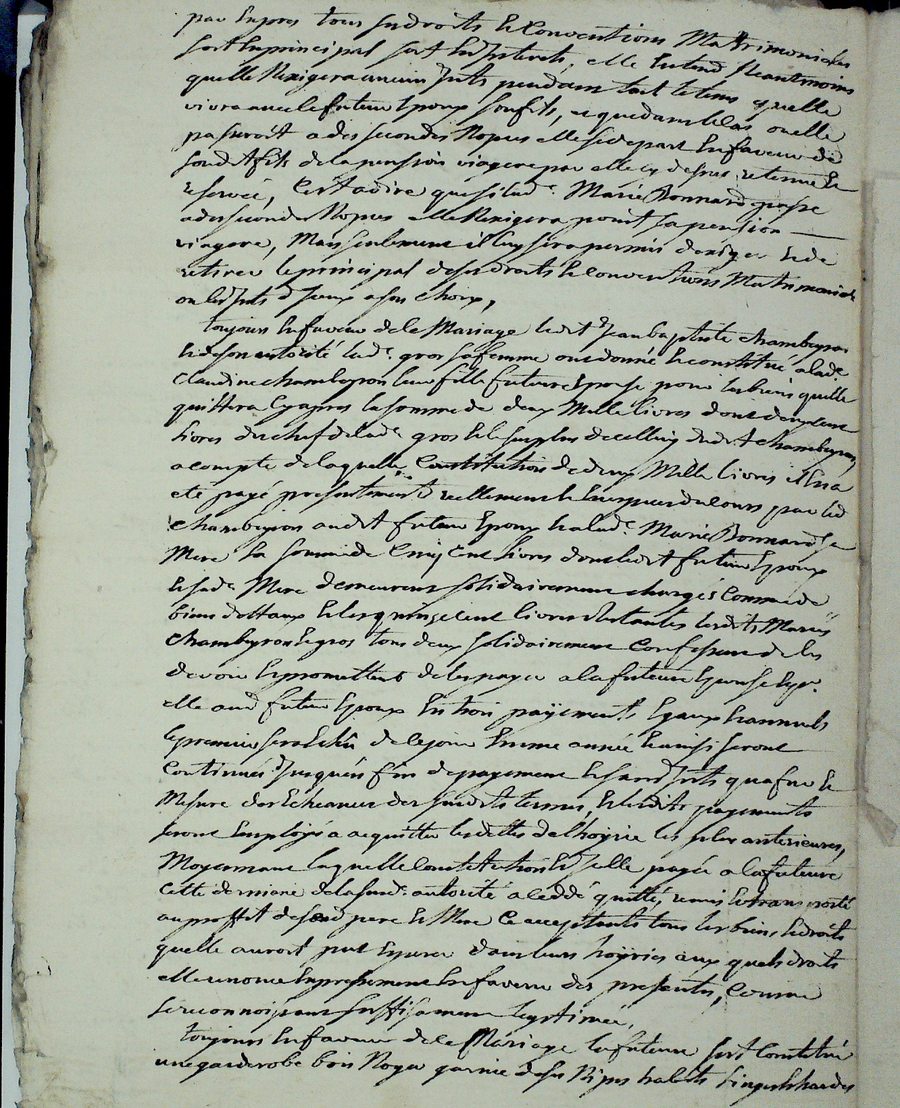 par exprès tous ses droits et Conventions Matrimoniales
soit en principal soit en Interets, elle entend Neantmoins
quelle N'exigera aucuns Jnts pendant tout le tems quelle
vivra avec le futur Epoux son fils, et que dans le cas ou elle
passeroit a des secondes Nopces elle se depart en faveur de
sondt fils de la pension viagere par elle cy dessus retenue et
reservée, C'est a dire que si lade. Marie Bonnard passe
a des secondes Nopces elle N'exigera point sa pension
viagere, Mais seulement il luy sera permis d'exiger et de
retirer le principal de ses droits et conventions Matrimoniales
ou les Jnts d'Jceux a son choix,
toujours en faveur de ce Mariage ledit Sr Jean baptiste chambeyron
et de son autorité lade. gros sa femme ont donné et constitué a lade.
Claudine chambeyron leur fille future Epouse pour les biens quelle
quittera cy apres la somme de deux Mille livres dont
livres du chef de lade. gros et le surplus de celluy dudt chambeyron,
a compte de laquelle Constitution de deux Mille livres il en a
eté payé presentement reellement et en especes du cours par led
chambeyron audt futur Epoux et a lade. Marie Bonnard sa
Mere la somme de Cinq Cent livres dont ledt futur Epoux
et sade. Mere demeurent solidairement chargés Comme de
biens dottaux et les quinze cent livres restantes lesdits Mariés
Chambeyron et gros tous deux solidairement Confessent de les
devoir et promettent de les payer a la future Epouse et pr.
elle aud futur Epoux en trois payements Egaux et annuels
le premier sera Echu de ce jour en une année et ainsi seront
Continués Jusques en fin de payement et sans Jnts qua fur et
Mesure des Echeances des susdits termes, et lesdits payements
seront Employés a acquitter les dettes de l'hoyrie les plus anterieures,
Moyennant laquelle Constitution et Jcelle payée a la future
Cette derniere de la sude. autorité a cedé quitté, remis et transporté
au proffit de sesd pere et Mere Ce acceptants tous les biens et droits
quelle auroit put Esperer dans leurs hoyries aux quels droits
elle renonce Expressement en faveur des presentes, Comme
se reconnoissant suffisamment legitimée,
toujours en faveur de ce Mariage la future s'est Constitué
une garderobe bois Noyer garnie de ses Nipes habits linges et hardes